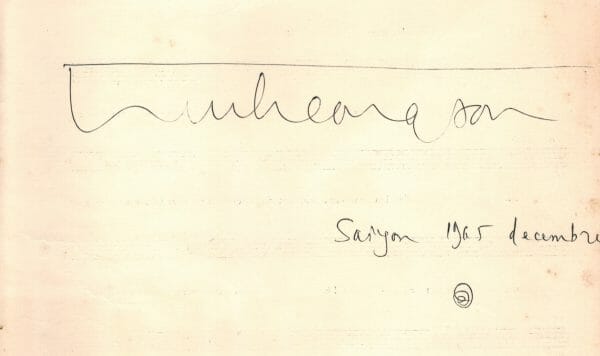 Trinhcongson
Saigon 1965 decembre